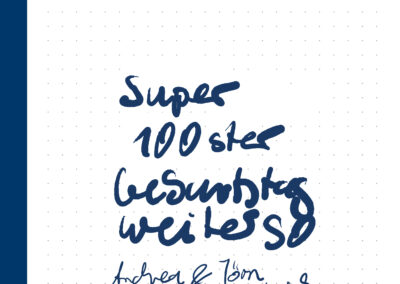 Super
100ster
Geburtstag
weiter so
Andrea & Jörn